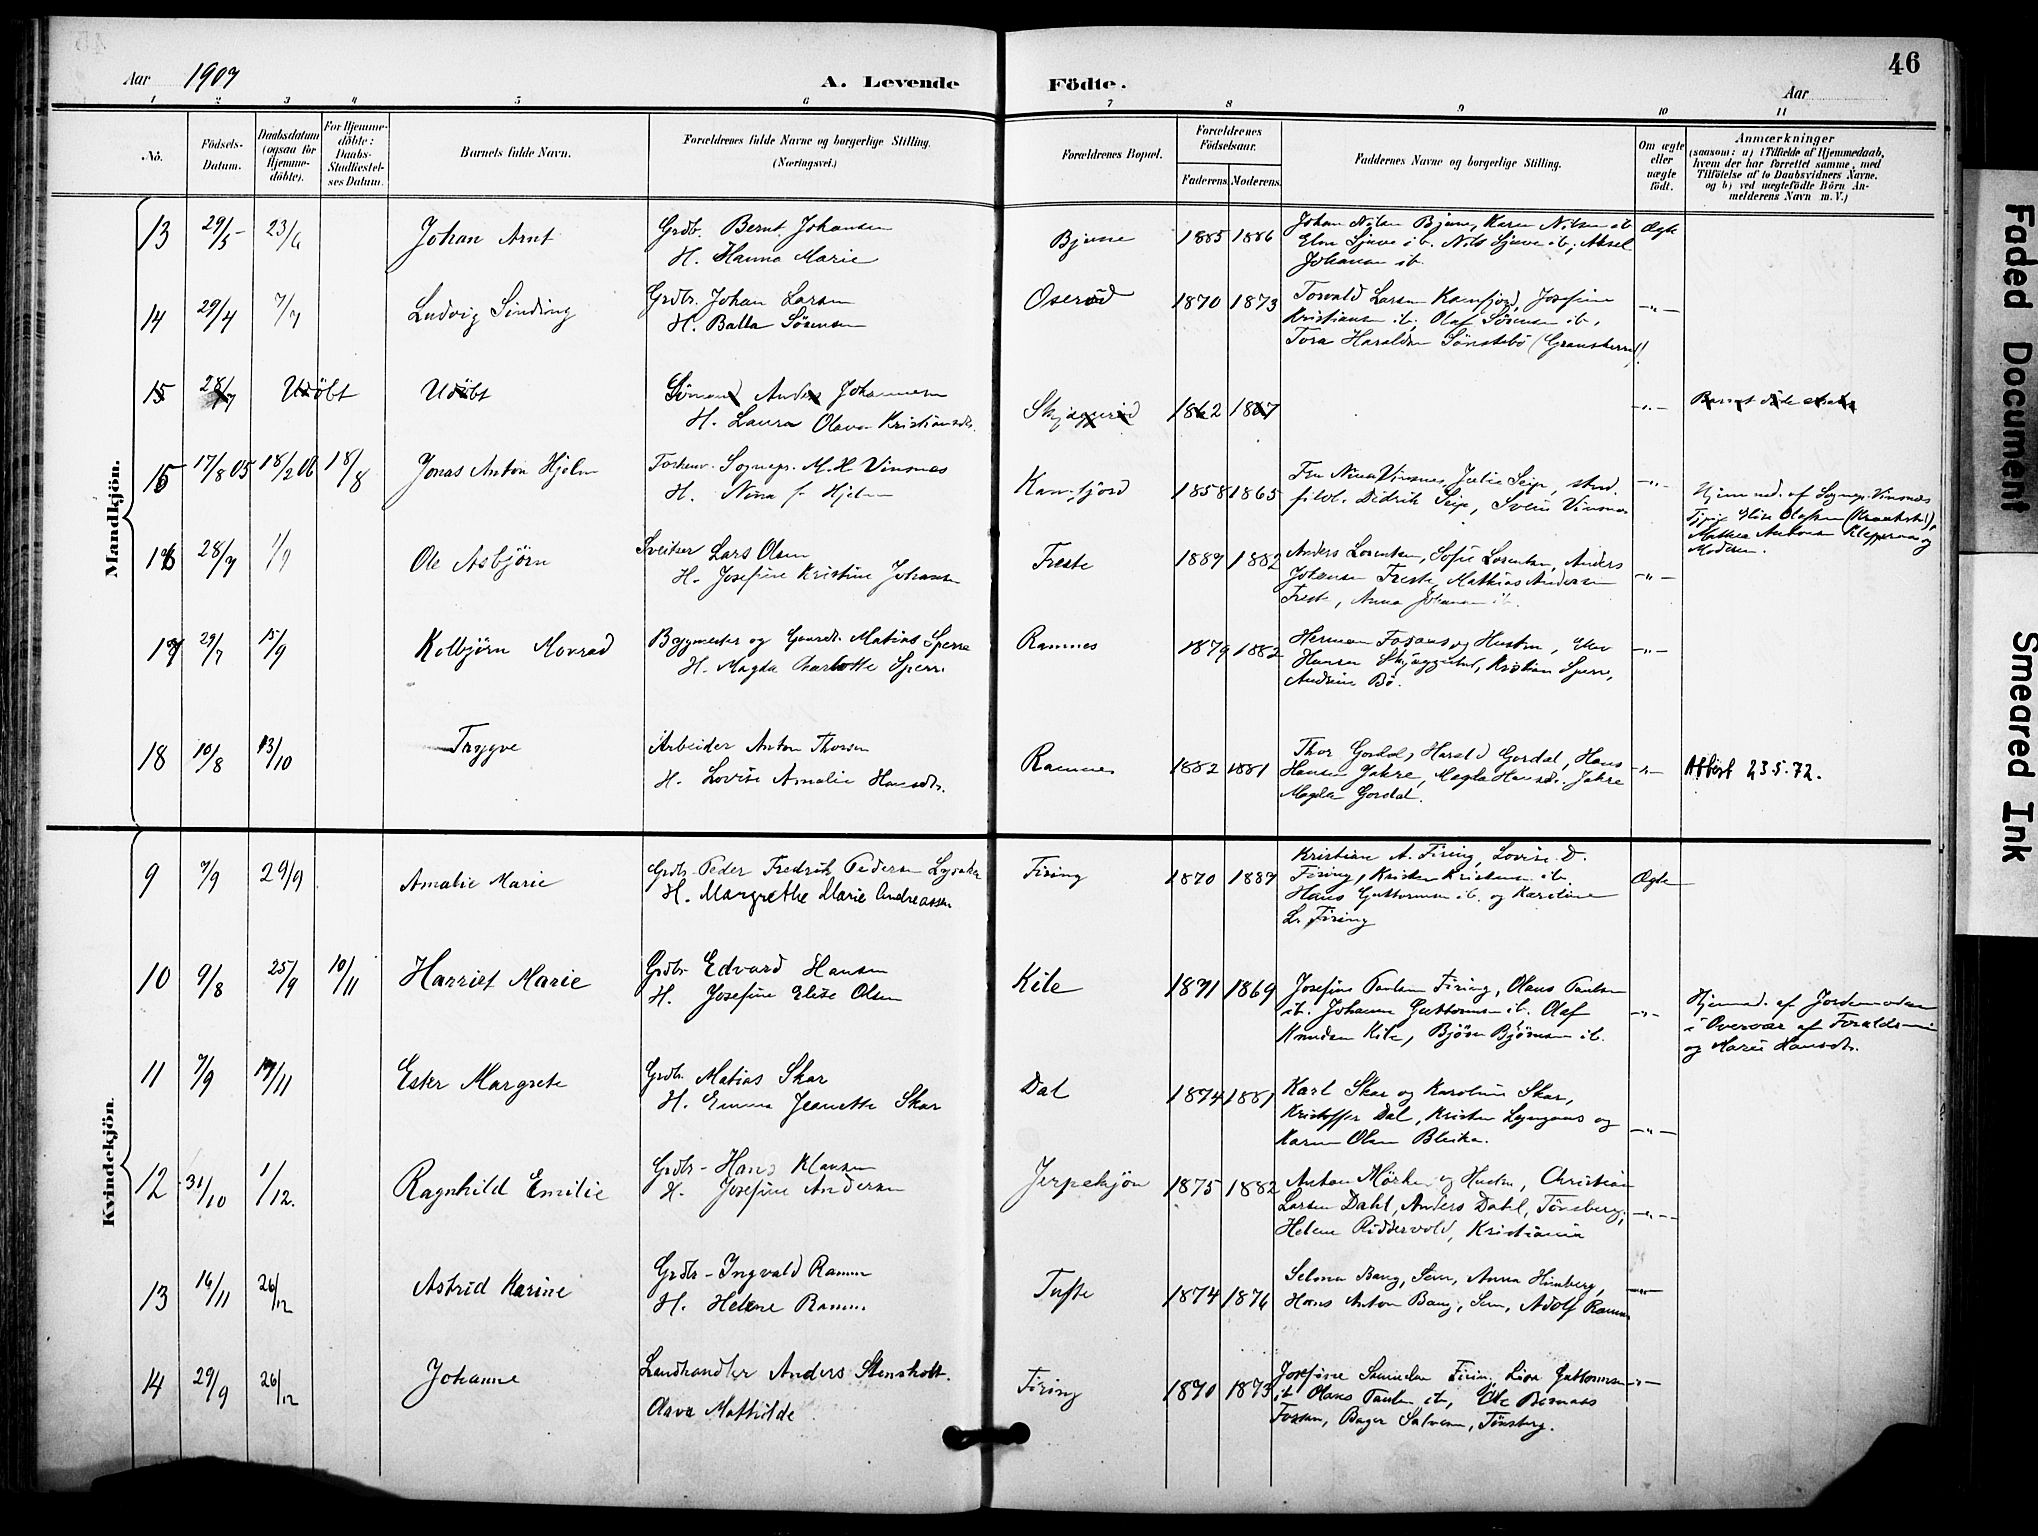 46
Aar 1907 A. Levende Födte. Aar
1 2 3 4 5 6 7 8 9 10 11
No.
Födsels-Datum.
Daabsdatum (ogsaa for Hjemme-döbte).
For Hjemme-döbte: Daabs-Stadfæstel-ses Datum.
Barnets fulde Navn.
Forældrenes fulde Navne og borgerlige Stilling.
(Næringsvei.)
Forældrenes Bopæl.
Forældrenes Födselsaar.
Faderens Moderens.
Faddernes Navne og borgerlige Stilling.
Om ægte eller uægte födt.
Anmærkninger
(saasom: a) i Tilfælde af Hjemmedaab,
hvem der har forrettet samme, med
Tilföielse af to Daabsvidners Navne.
og b) ved uægtefödte Börn An-
melderens Navn m. V.)
Mandkjön.
13 29/5 23/6 Johan Arnt Grdb. Bernt Johansen Bjune 1885 1886 Johan Bjune, Karen Nilsen ib. Ægte
H. Hanna Marie ib. Nils ib. Aksel
Johansen ib.
14 29/4 7/7 Ludvig Sinding Grdbr. Johan Larsen Oseröd 1870 1873 Torvald Larsen Kamfjord, Josefine -"-
H. Balla Sörensen Kristiansen ib. Olaf Sörensen ib.
Tora Haraldsen Sönstebö (Gransherred).
15 28/7 Udöbt Udöbt Anders Johannesen 1862 1867 -"- Barnet döde
H. Laura Olava Kristiansdtr.
15 17/8 05 18/2 06 18/8 Jonas Anton Hjelm Forhenv. Sognepr. M. H. Vinsnes Kamfjord 1858 1865 Fru Nina Vinsnes, Julie Seip, stud. -"- Hjemmed. af Sognepr. Vinsnes
H. Nina f. Hjelm filol. Didrik Seip, Svein Vinsnes
Mathea Antonsen
16 28/7 1/9 Ole Asbjörn Sveitser Lars Olsen Freste 1889 1882 Anders Lorentsen, Sofie Lorentsen, Anders -"-
H. Josefine Kristine Johansen Johansen Freste, Mathias Andersen
Freste, Anna Johansen ib.
17 29/7 15/9 Kolbjörn Monrad Bygmester og Gaardbr. Matias Sperre Ramnes 1879 1882 Herman Fossaas og Hustru, -"-
H. Magda Charlotte Sperre Hansen, Kristian Sperre,
Andrine Bö.
18 10/8 13/10 Trygve Arbeider Anton Thorsen Ramnes 1882 1881 Thor Gordal, Harald Gordal, Hans -"- Attest 23.5.72.
H. Lovise Amalie Hansdtr. Hansen Jahre, Magda Hansdtr. Jahre
Magda Gordal.
Kvindekjön.
9 7/9 29/9 Amalie Marie Grdbr. Peder Fredrik Pedersen Firing 1870 1889 Kristian A. Firing, Lovise D. Ægte
H. Margrethe Marie Andreassen Firing, Kristen Kristensen ib.
Hans Guttormsen ib. og Karoline
L. Firing
10 9/8 25/9 10/11 Harriet Marie Grdbr. Edvard Hansen Kile 1871 1869 Josefine Paulsen Firing, Olaus Paulsen -"- Hjemmed. af Jordemoderen
H. Josefine Elise Olsen ib. Johanne Guttormsen ib. Olaf i Overvær af Forældrene
Knudsen Kile, Björn Björnsen ib. og Marie Hansdtr.
11 7/9 17/11 Ester Margrete Grdbr. Matias Skar Dal 1874 1881 Karl Skar og Karoline Skar, -"-
H. Emma Jeanette Skar Kristoffer Dal, Kristen Lyngaas og
Karen Olsen Bleika.
12 31/10 1/12. Ragnhild Emilie Grdbr. Hans Klausen Jerpekjön 1875 1882 Anton Mörken og Hustru, Christian -"-
H. Josefine Andersen Larsen Dahl, Anders Dahl, Tönsberg,
Helene Riddervold, Kristiania
13 16/11 26/12 Astrid Karine Grdbr. Ingvald Ramm Tufte 1874 1876 Selma Bang, Sem, Anna Himberg, -"-
H. Helene Ramm Hans Anton Bang, Sem, Adolf Ramm
14 29/9 26/12 Johanne Landhandler Anders Stensholt. Firing 1870 1873 Josefine Firing, Lisa Guttormsen -"-
Olava Mathilde ib. Olaus Paulsen ib, Ole
Fossan, Bager Salvesen, Tönsberg.
Faded Document Smeared Ink